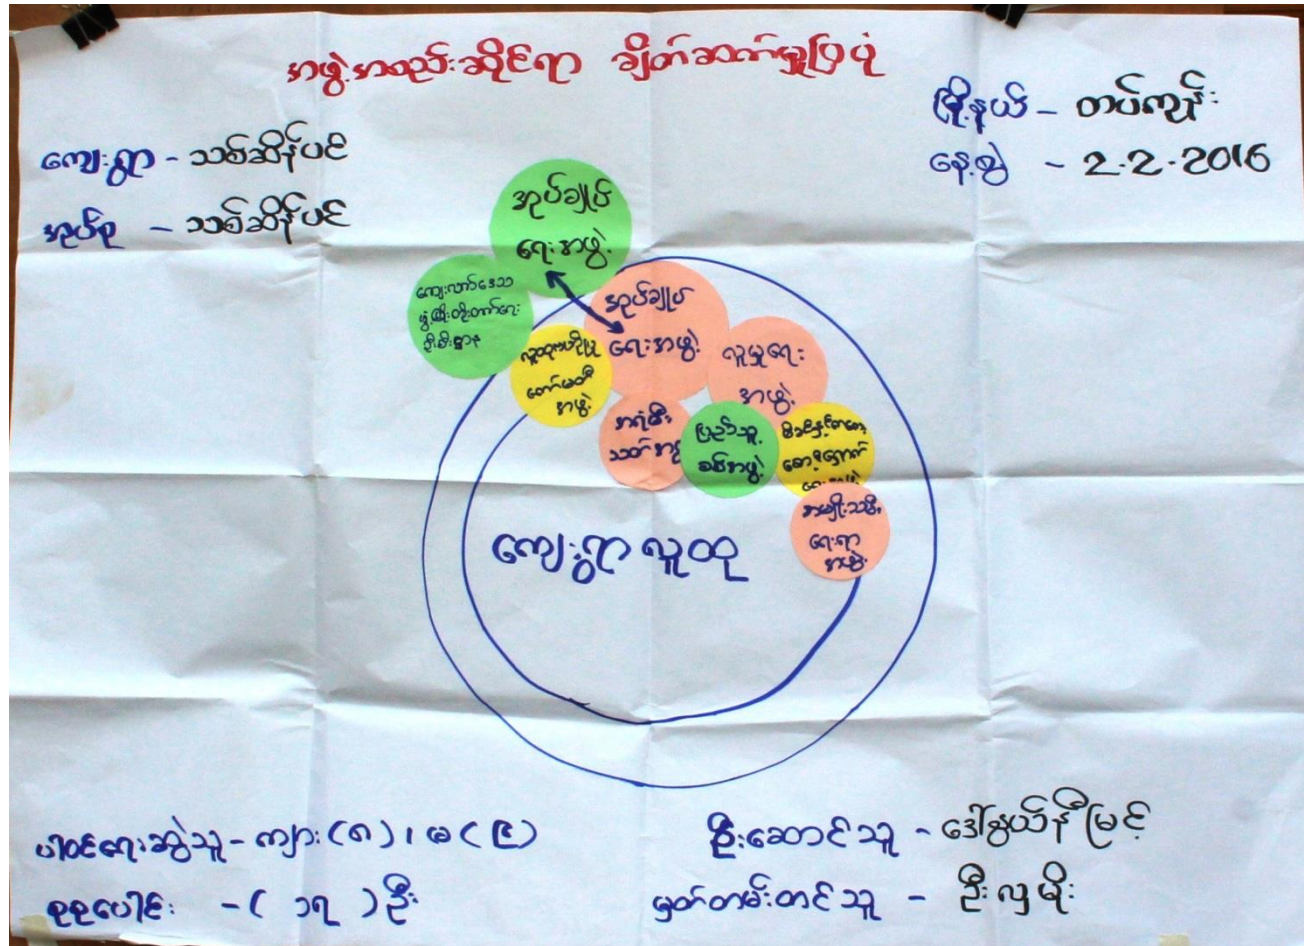 အဖွဲ့အစည်းဆိုင်ရာ ချိတ်ဆက်မှုပြပုံ
မြို့နယ် - တပ်ကုန်း
နေ့စွဲ - 2.2.2016
ကျေးရွာ - သစ်ဆိမ့်ပင်
အုပ်စု - သစ်ဆိမ့်ပင်
အုပ်ချုပ်
ရေးအဖွဲ့
ကျေးလက်ဒေသ
ဖွံ့ဖြိုးတိုးတက်ရေး
ဦးစီးဌာန
အုပ်ချုပ်
ရေးအဖွဲ့
လူထုဗဟိုပြု
ကော်မတီ
အဖွဲ့
လူမှုရေး
အဖွဲ့
အရံမီး
သတ်အဖွဲ့
ပြည်သူ့
စစ်အဖွဲ့
မိခင်နှင့်ကလေး
စောင့်ရှောက်
ရေးအဖွဲ့
အမျိုးသမီး
ရေးရာ
အဖွဲ့
ကျေးရွာလူထု
ပါဝင်ရေးဆွဲသူ - ကျား (၈)၊ မ (၉)
စုစုပေါင်း - ( ၁၇ ) ဦး
ဦးဆောင်သူ - ဒေါ်နွယ်နီမြင့်
မှတ်တမ်းတင်သူ - ဦးလှမိုး